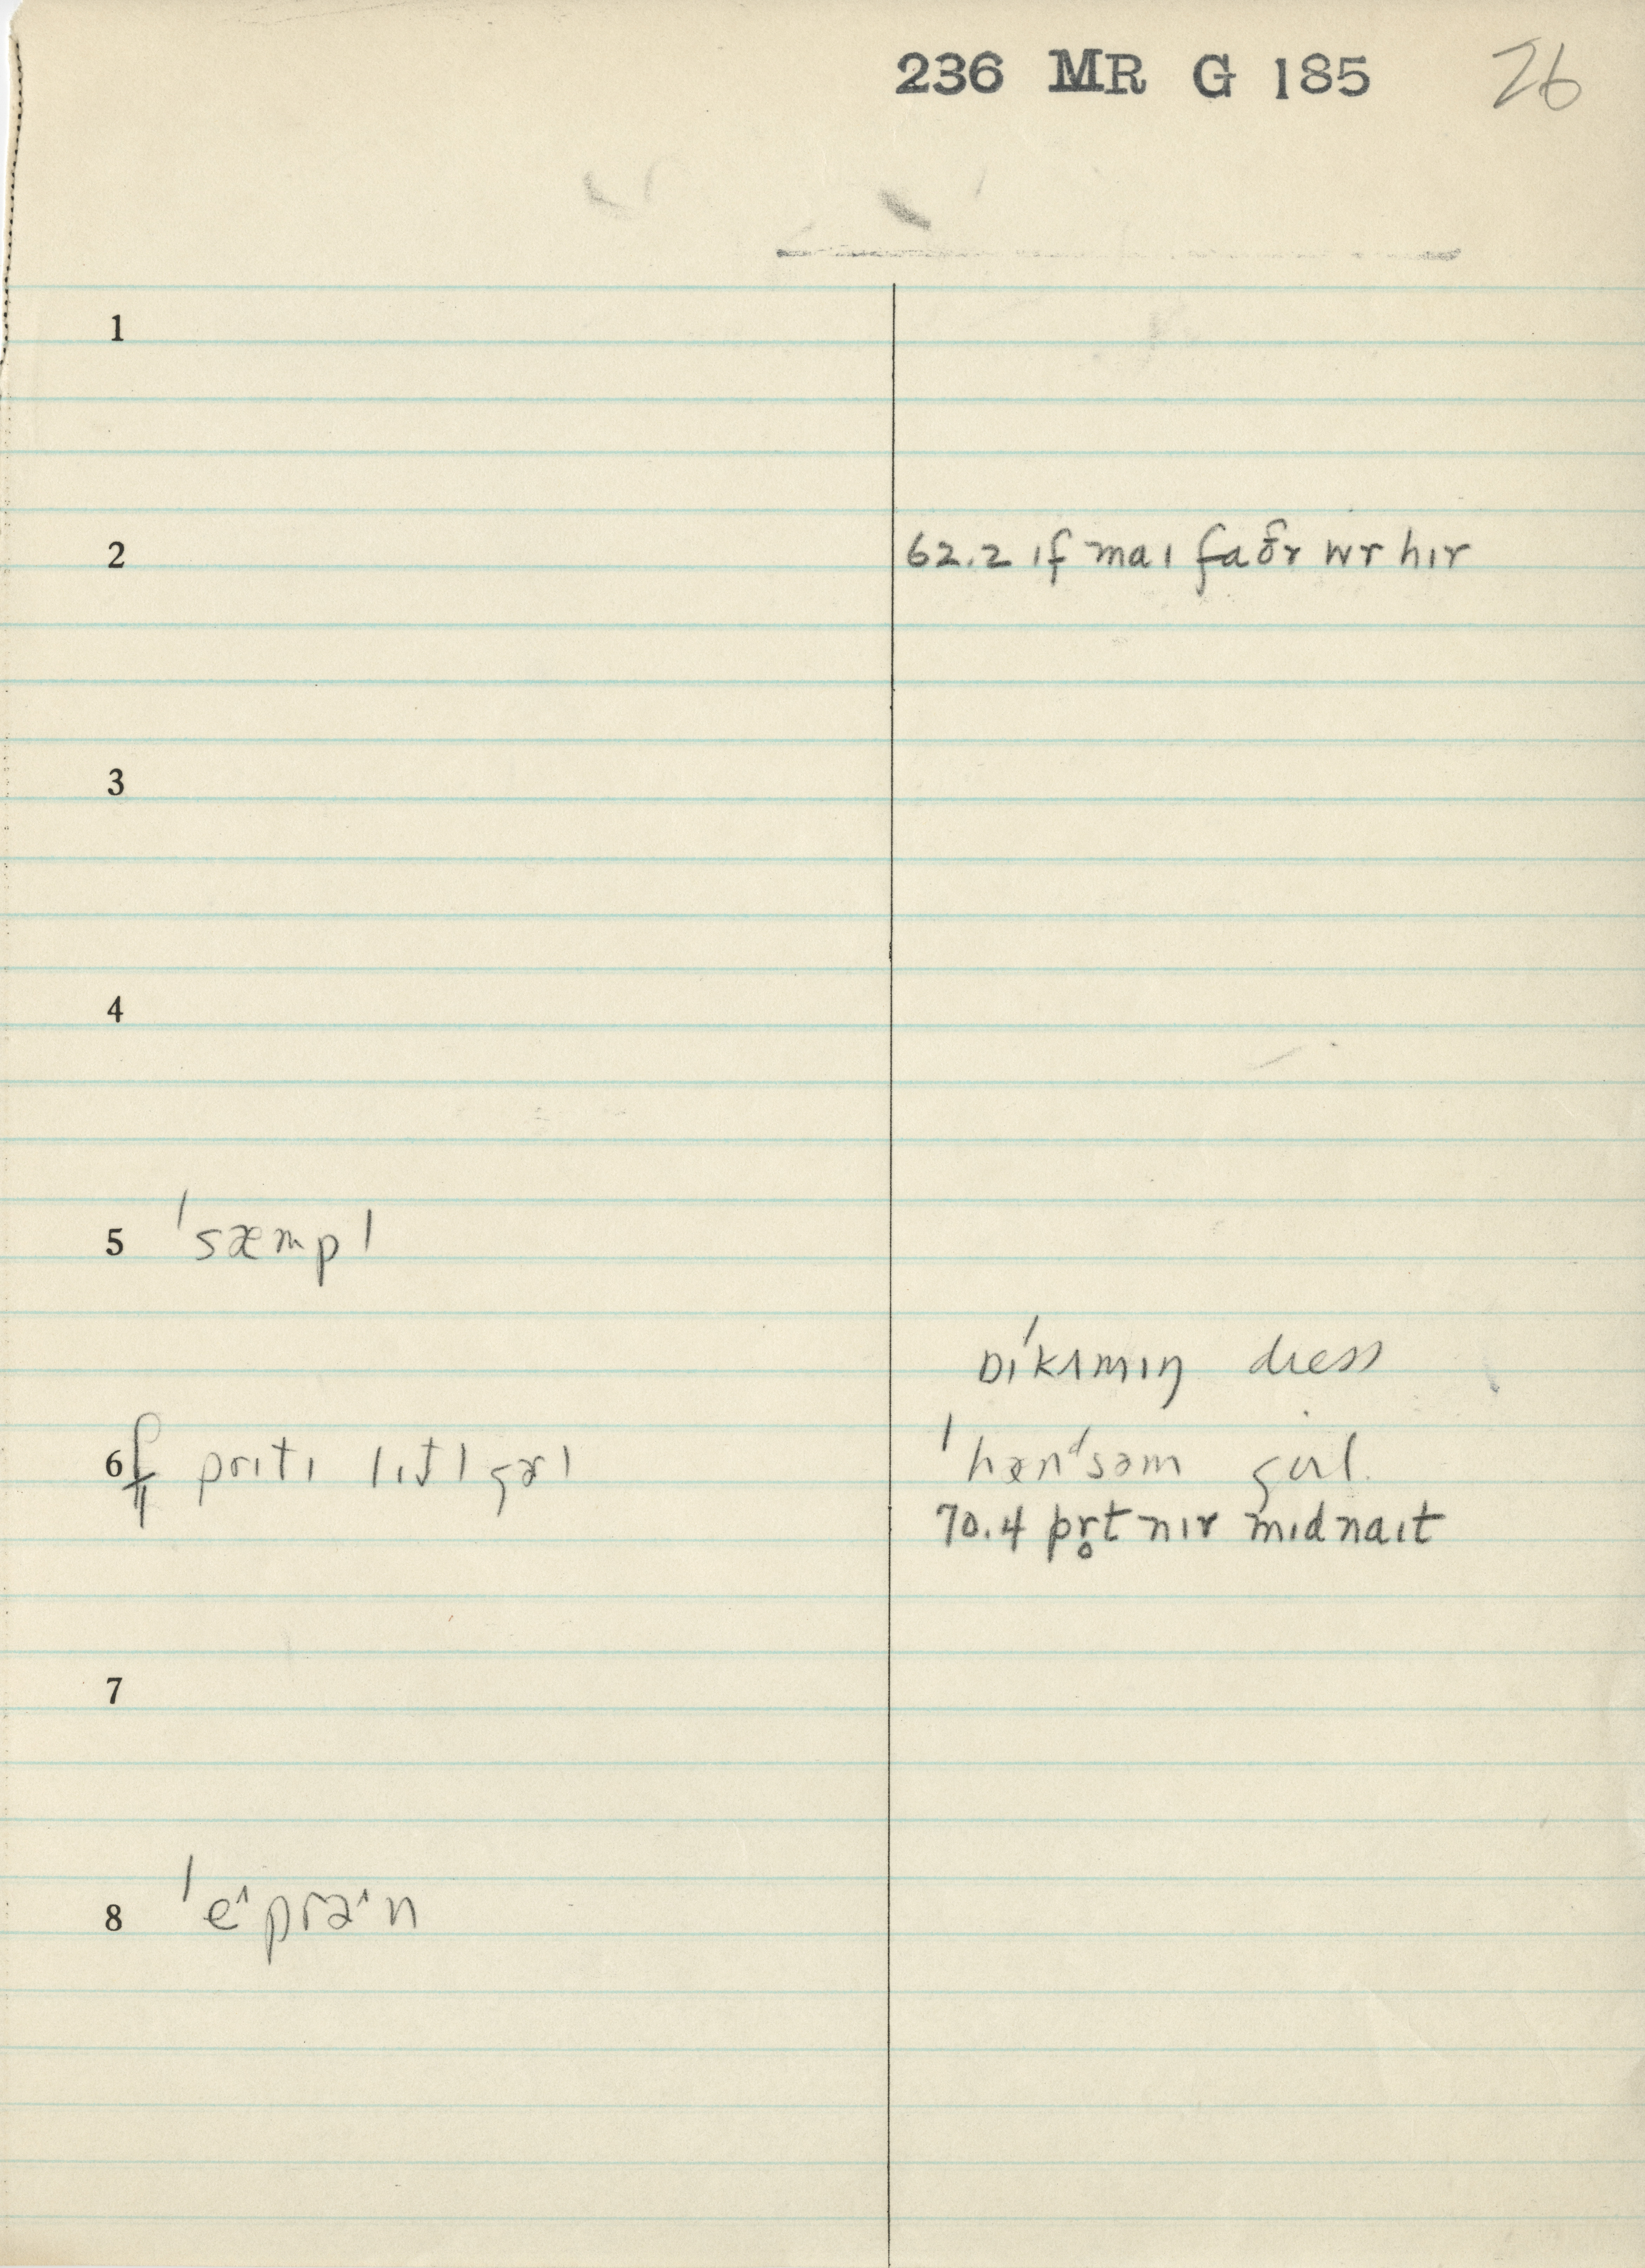 236 MR G 185 26
1
2 62.2 ɪf maɪ faðr wr hɪr
3
4
5 ˈsæmpl
bɪˈkʌmɪŋ dress
6 prɪtɪ lɪt̬l gɚl ˈhænᵈsəm girl.
70.4 pr̥t nɪr mɪdnaɪt
7
8 ˈe^prə^n